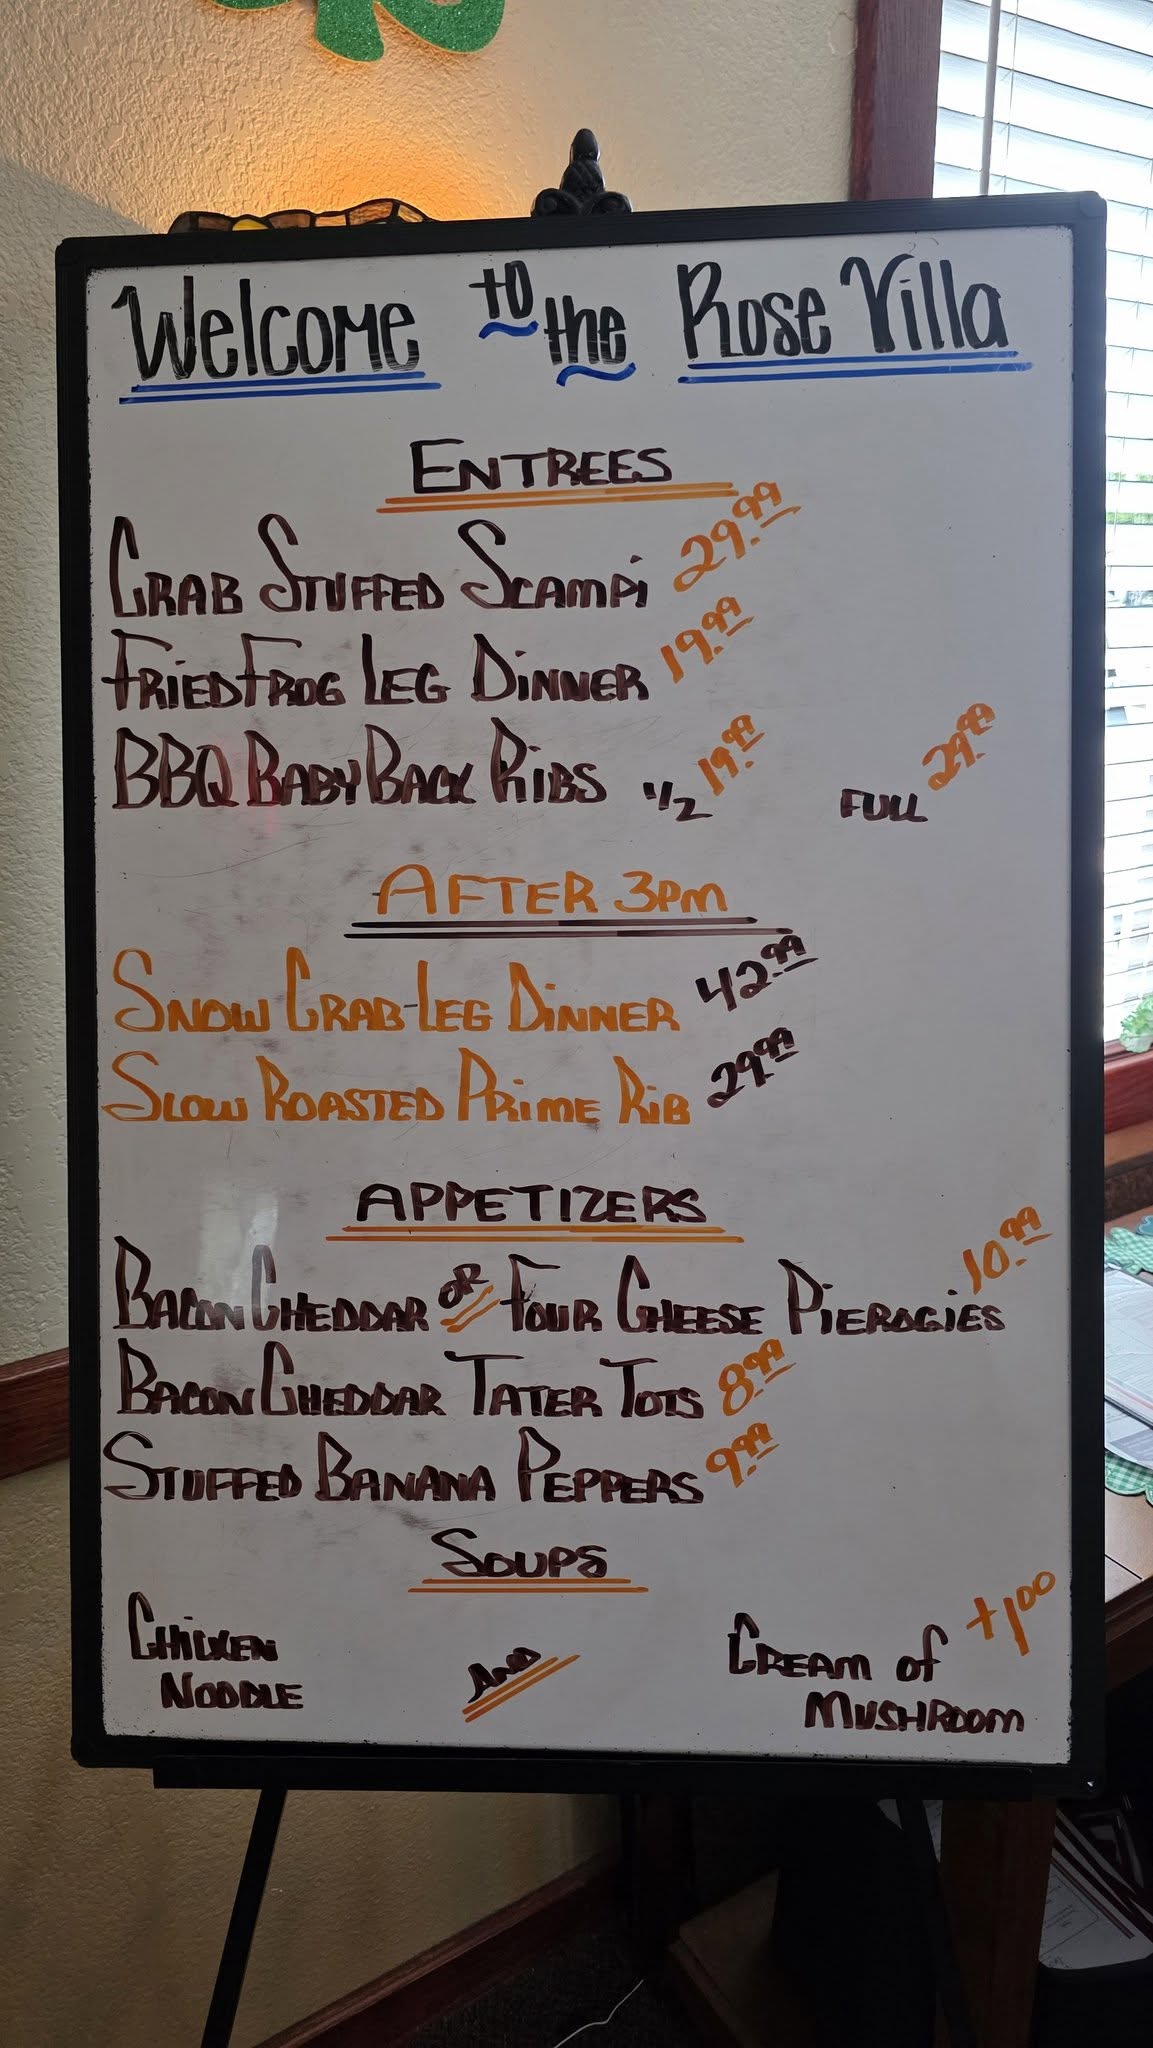 Welcome to the Rose Villa
ENTREES
CRAB STUFFED SCAMPi 29.99
FRiED FROG LEG DiNNER 19.99
BBQ BABY BACK RiBS 1/2 19.99 FULL 29.99
AFTER 3PM
SNOW CRAB-LEG DiNNER 42.99
SLOW ROASTED PRiME RiB 29.99
APPETIZERS
BACON CHEDDAR OR FOUR CHEESE PiEROGiES 10.99
BACON CHEDDAR TATER TOTS 8.99
STUFFED BANANA PEPPERS 9.99
SOUPS
CHiCKEN NOODLE AND CREAM of MUSHROOM +1.00